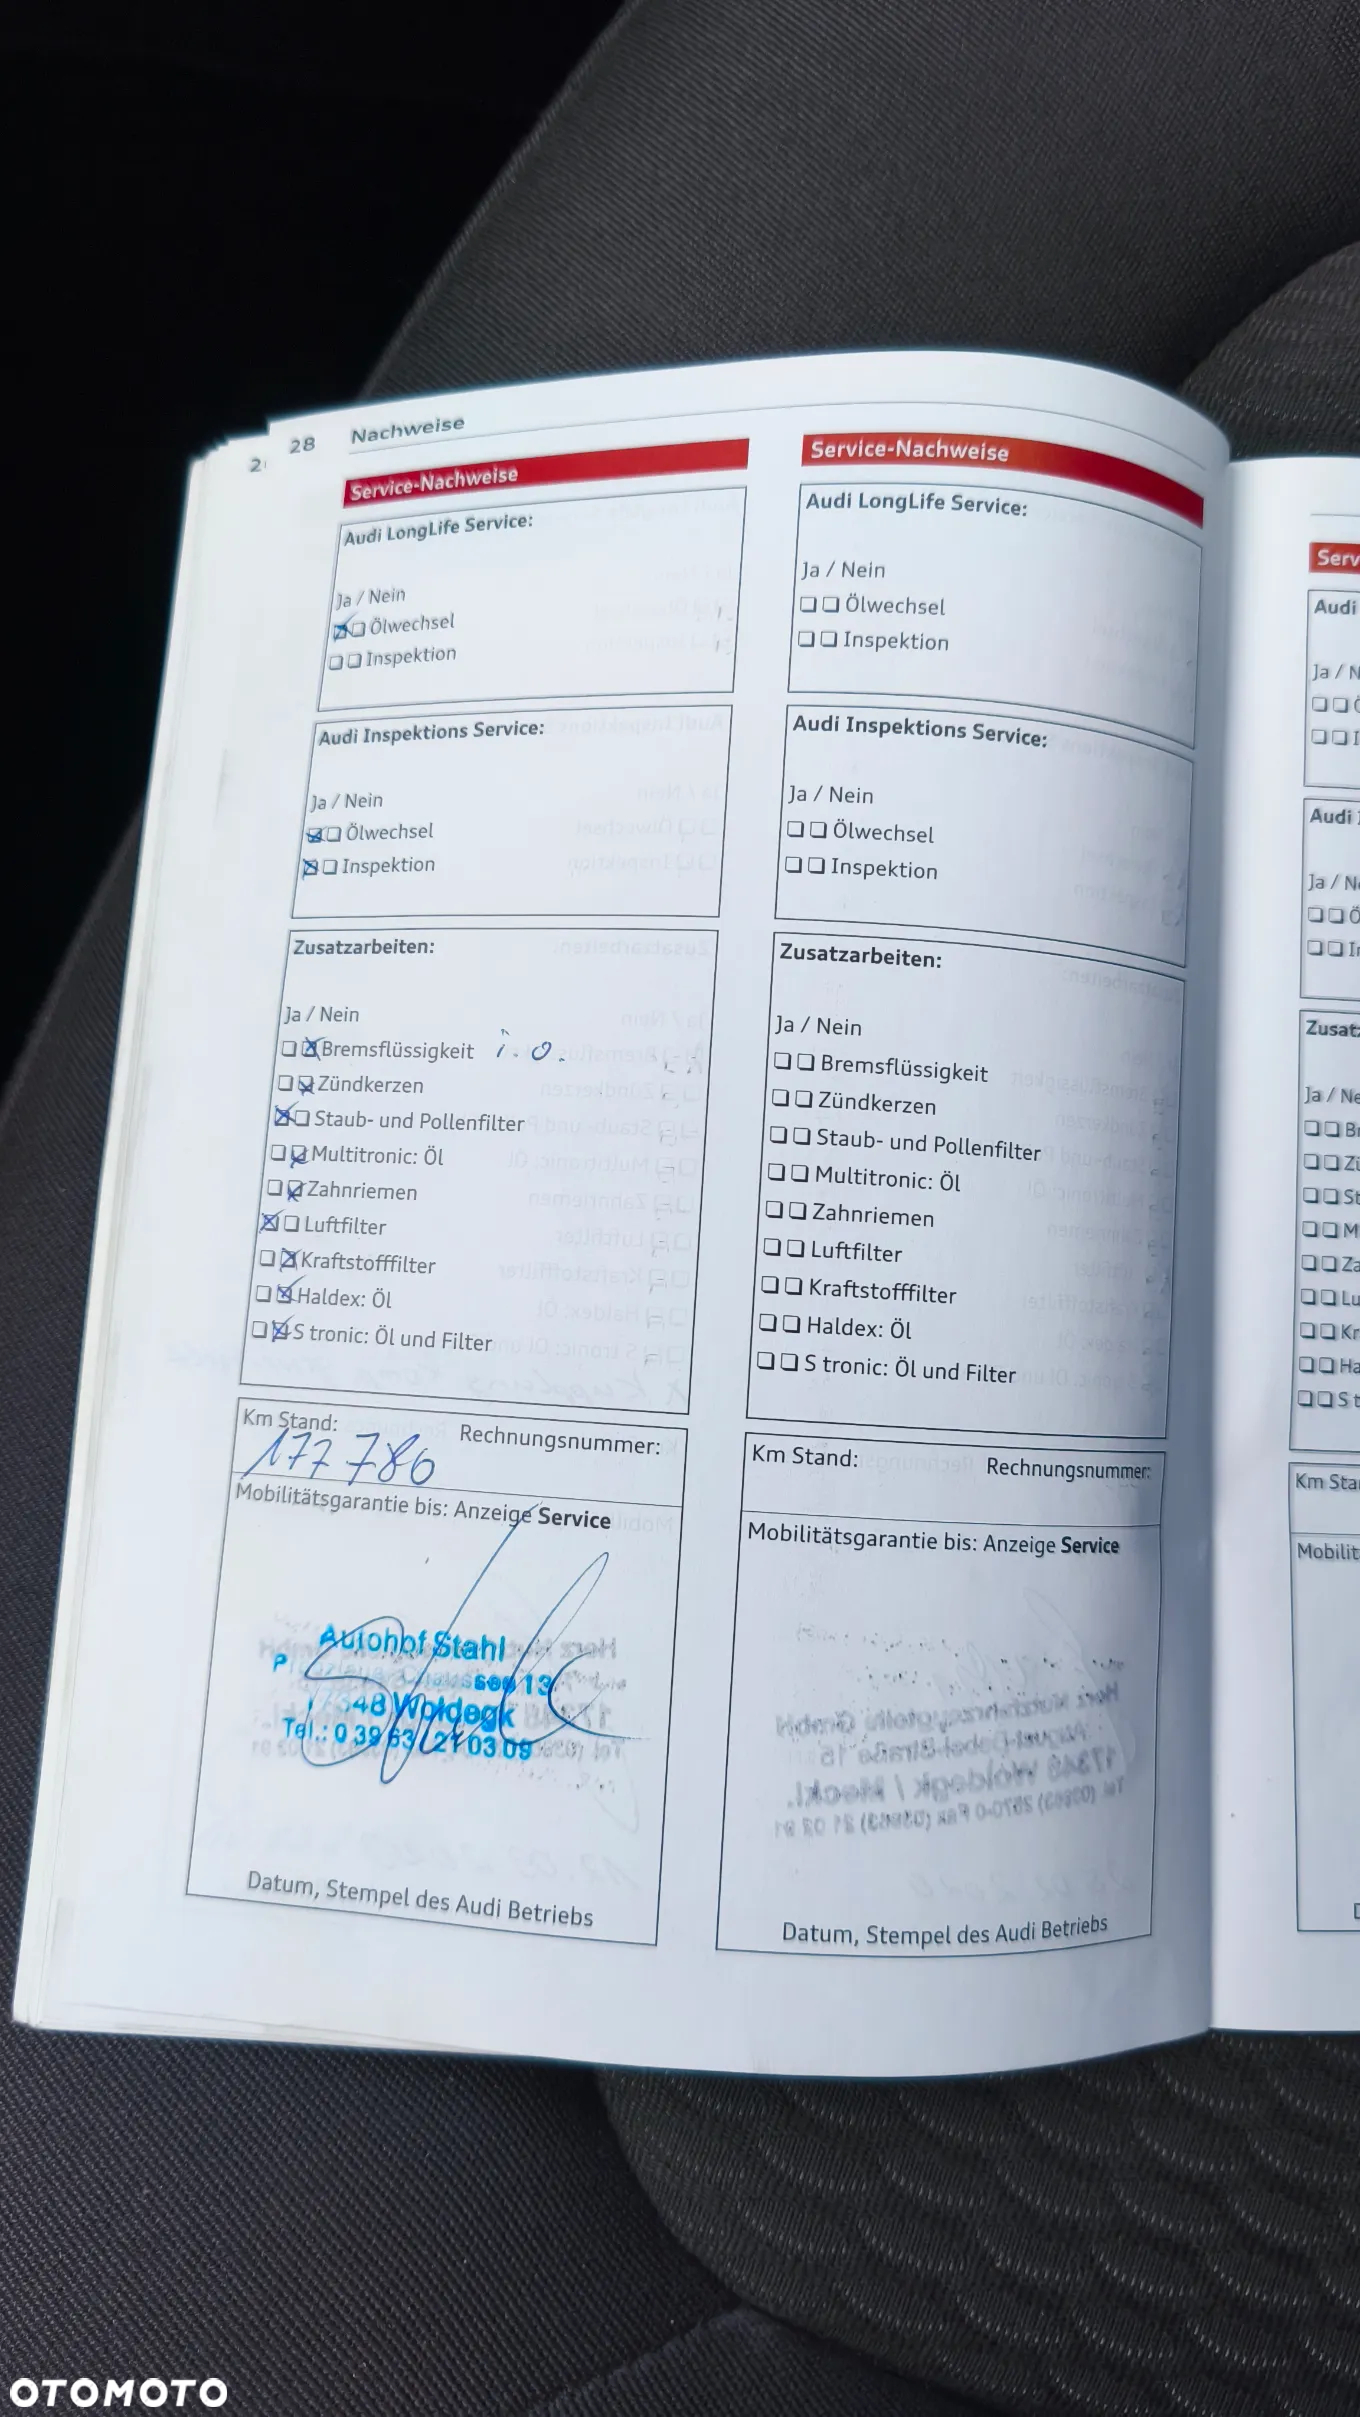 28 Nachweise
2
Service-Nachweise
Audi LongLife Service:
Ja / Nein
Ölwechsel
Inspektion
Audi Inspektions Service:
Ja / Nein
Ölwechsel
Inspektion
Zusatzarbeiten:
Ja / Nein
Bremsflüssigkeit i.o.
Zündkerzen
Staub- und Pollenfilter
Multitronic: Öl
Zahnriemen
Luftfilter
Kraftstofffilter
Haldex: Öl
S tronic: Öl und Filter
Km Stand: Rechnungsnummer:
177 786
Mobilitätsgarantie bis: Anzeige Service
Autohof Stahl
P see 13
17348 Woldegk
Tel.: 0 39 63 / 21 03 09
Datum, Stempel des Audi Betriebs
Service-Nachweise
Audi LongLife Service:
Ja / Nein
Ölwechsel
Inspektion
Audi Inspektions Service:
Ja / Nein
Ölwechsel
Inspektion
Zusatzarbeiten:
Ja / Nein
Bremsflüssigkeit
Zündkerzen
Staub- und Pollenfilter
Multitronic: Öl
Zahnriemen
Luftfilter
Kraftstofffilter
Haldex: Öl
S tronic: Öl und Filter
Km Stand: Rechnungsnummer:
Mobilitätsgarantie bis: Anzeige Service
Datum, Stempel des Audi Betriebs
Serv
Audi
Ja / N
Ö
I
Audi
Ja / Ne
Ö
In
Zusatz
Ja / Ne
Br
Zü
St
M
Za
Lu
Kr
Ha
S t
Km Sta
Mobilit
D
OTOMOTO